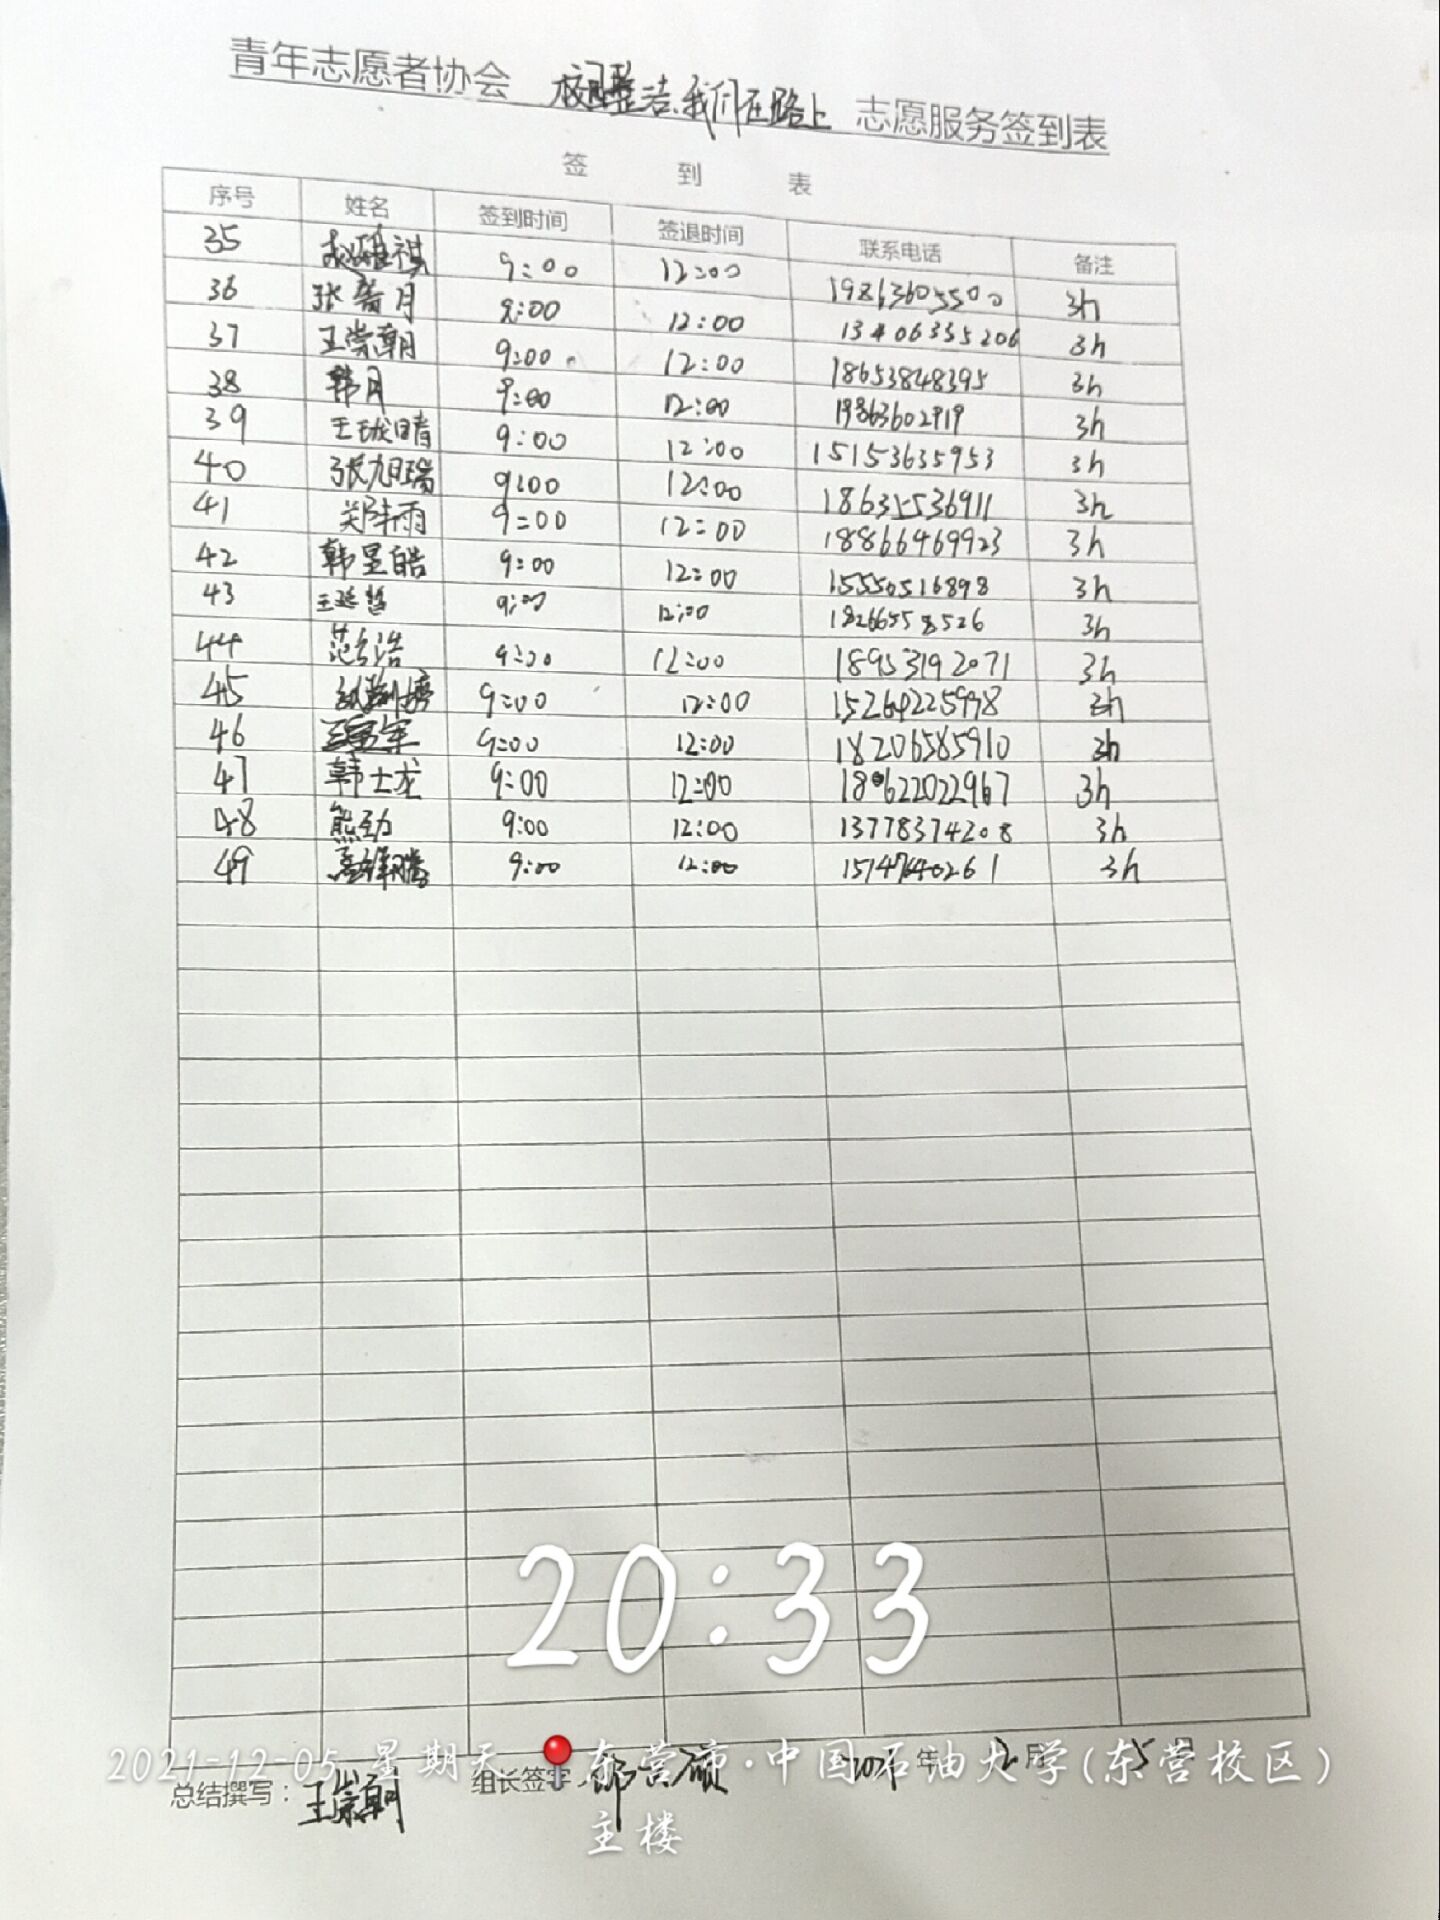 青年志愿者协会 校园整洁,我们在路上 志愿服务签到表
签 到 表
序号 姓名 签到时间 签退时间 联系电话 备注
35 9:00 12:00 19863605500 3h
36 张 月 9:00 12:00 13406355206 3h
37 王崇朝 9:00 12:00 18653848395 3h
38 韩月 9:00 12:00 19863602919 3h
39 王珑晴 9:00 12:00 15153635953 3h
40 张旭瑞 9:00 12:00 18635536911 3h
41 郑雨 9:00 12:00 18866469923 3h
42 韩昱皓 9:00 12:00 15550516898 3h
43 9:00 12:00 18266558526 3h
44 范浩 9:00 12:00 18953192071 3h
45 9:00 12:00 3h
46 9:00 12:00 18206585910 3h
47 韩士龙 9:00 12:00 3h
48 熊劲 9:00 12:00 13778374208 3h
49 9:00 12:00 3h
20:33
2021-12-05 星期天 东营市·中国石油大学(东营校区)
主楼
总结撰写: 王崇朝 组长签字: 2021年12月5日